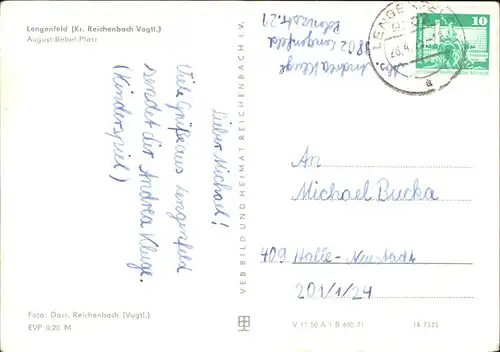 Lengenfeld (Kr. Reichenbach Vogtl.)
August-Bebel-Platz
Lieber Michael!
Viele Grüße aus Lengenfeld
sendet dir Andrea Kluge.
(Kinderspiel)
Foto: Darr, Reichenbach (Vogtl.)
EVP 0,20 M
VEB BILD UND HEIMAT REICHENBACH I. V.
Abs. Andrea Kluge
9802 Lengenfeld
Polenzstr. 21
LENGENFELD
10
An
Michael Burka
409 Halle-Neustadt
201/1/24
V 11 50 A 1 B 690/71
14 7333